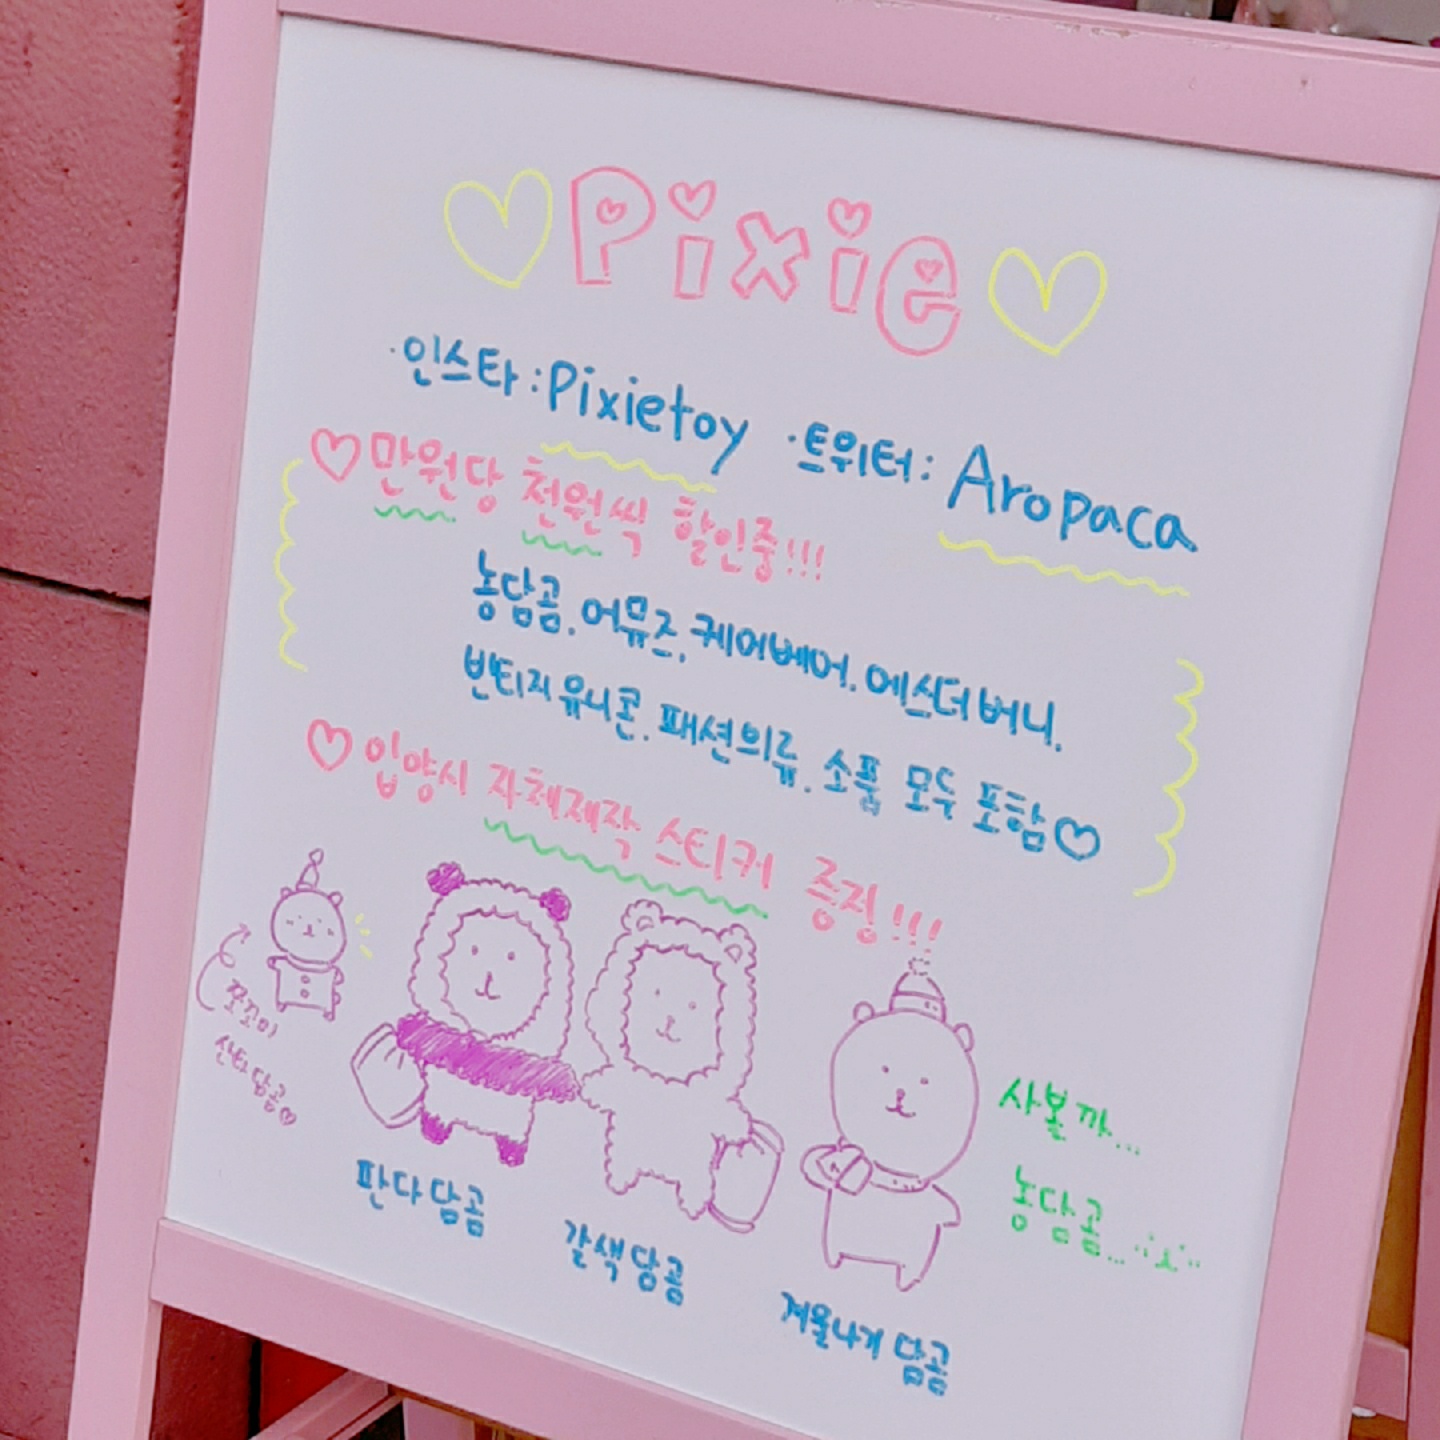 Pixie
·인스타:Pixietoy ·트위터: Aropaca
♡만원당 천원씩 할인중!!!
농담곰. 어뮤즈. 케어베어. 에스더버니.
빈티지유니콘. 패션의류. 소품 모두 포함♡
♡입양시 자체제작 스티커 증정!!!
쪼꼬미
산타담곰♡
판다담곰
갈색담곰
겨울나기 담곰
사볼까...
농담곰...